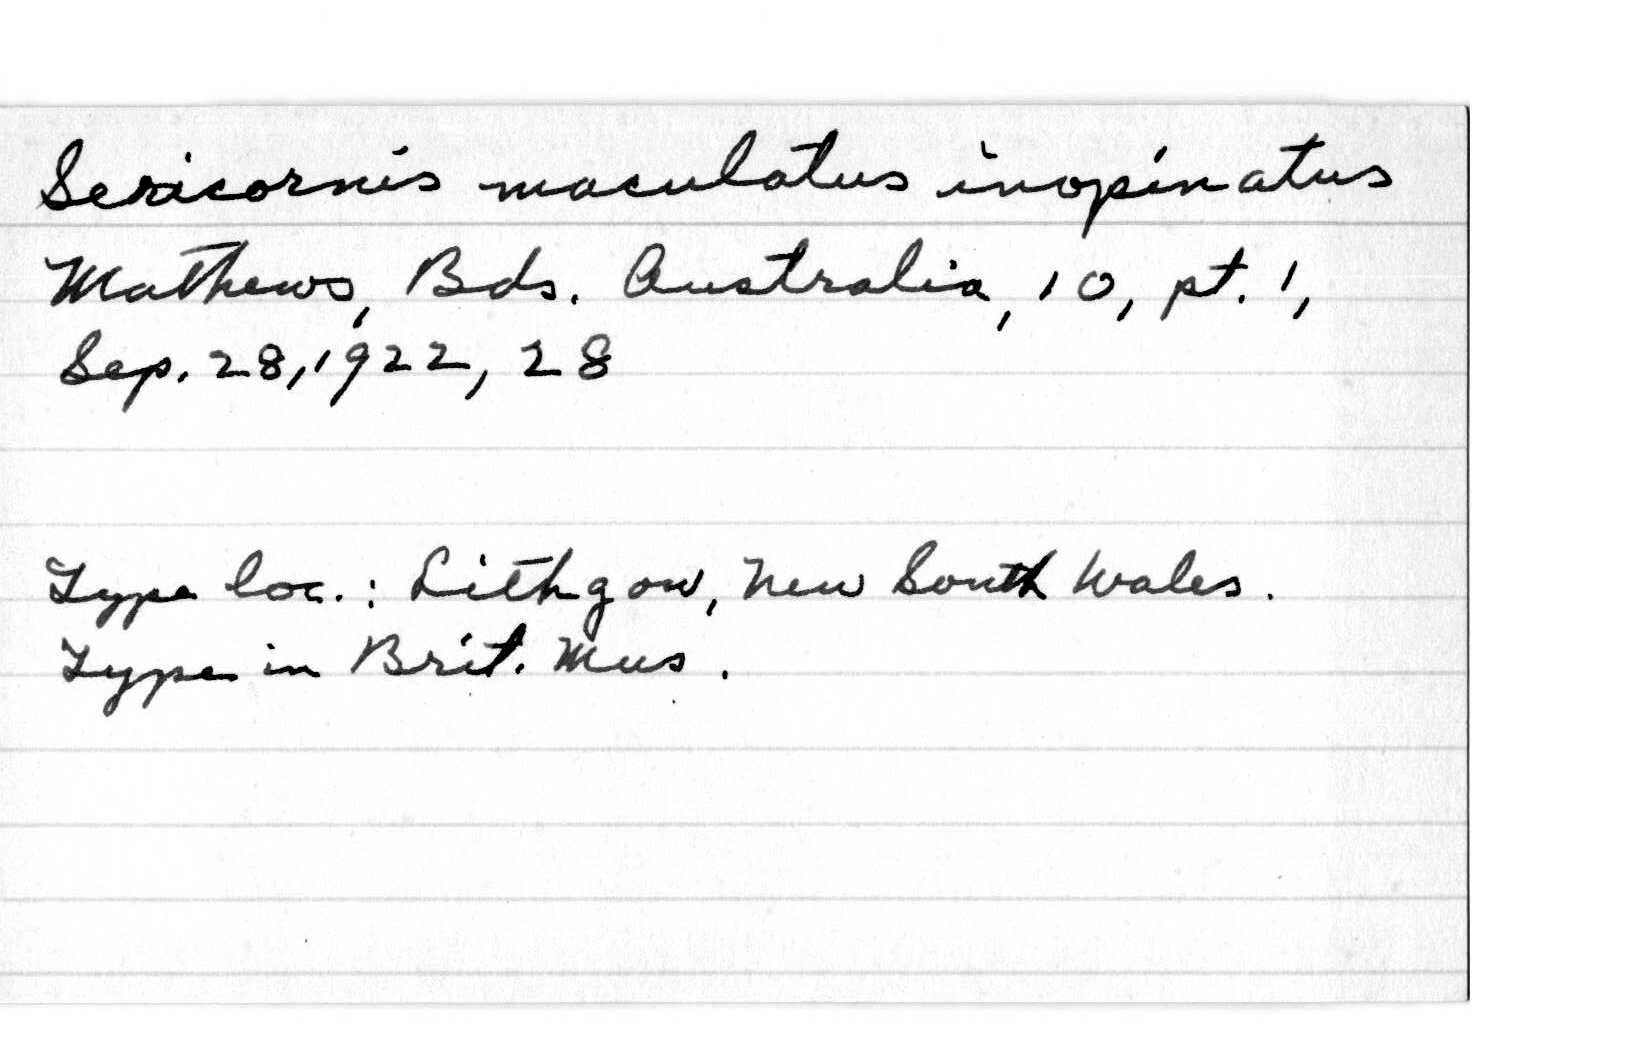 Sericornis maculatus inopinatus
Mathews, Bds. Australia, 10, pt. 1,
Sep. 28, 1922, 28
Type loc.: Lithgow, New South Wales.
Type in Brit. Mus.